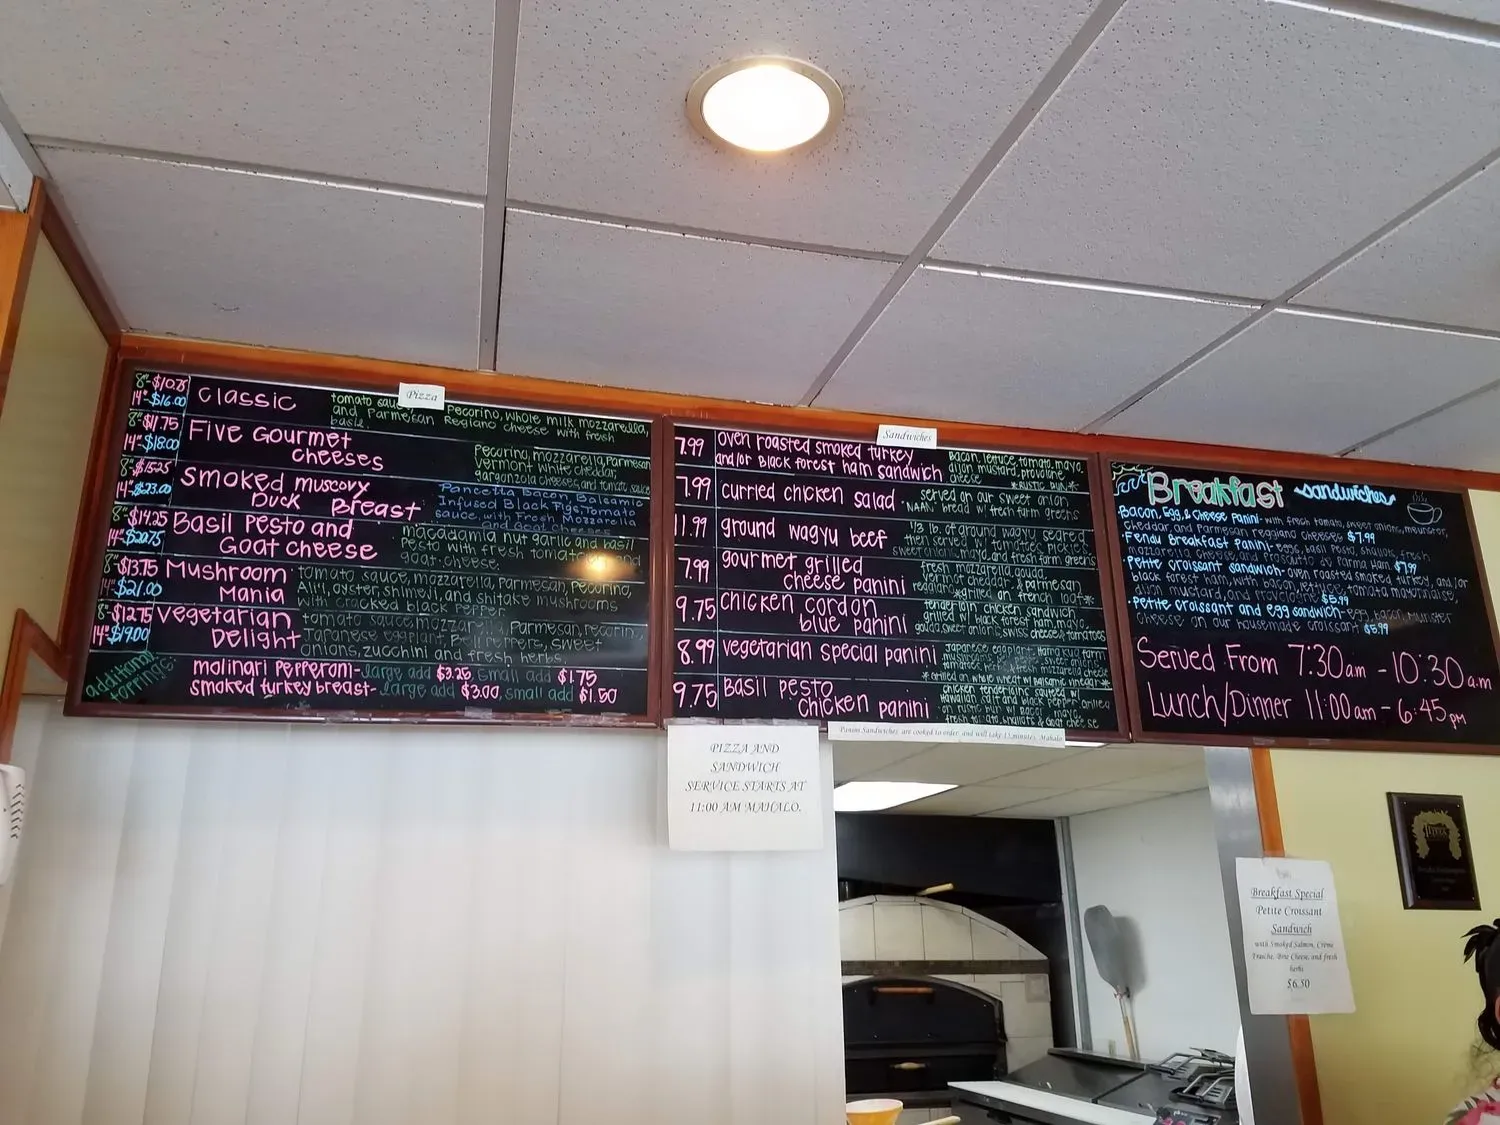 Pizza
8"-$10.75
14"-$16.00
Classic
Pecorino, whole milk mozzarella,
and Parmesan Regiano cheese with fresh
basil.
8"$11.75
14"-$18.00
Five Gourmet
Cheeses
Pecorino, mozzarella, Parmesan
Vermont white cheddar,
gargonzola cheeses, and tomato sauce
8"$15.25
14"-$23.00
Smoked Muscovy
Duck Breast
Pancetta Bacon, Balsamic
Infused Black Figs, Tomato
sauce, with Fresh Mozzarella
8"$14.25
14"-$20.75
Basil Pesto and
Goat cheese
macadamia nut garlic and basil
pesto with fresh
goat cheese.
8"$13.75
14"-$21.00
Mushroom
Mania
tomato sauce, mozzarella, Parmesan, Pecorino,
Alii, oyster, shimeji, and shitake mushrooms
with cracked black pepper
8"$12.75
14"-$19.00
Vegetarian
Delight
tomato sauce, mozzarella, Parmesan, pecorino,
Japanese eggplant, Bell peppers, sweet
onions, zucchini and fresh herbs
additional
toppings:
molinari Pepperoni- large add $3.25, small add $1.75
smoked turkey breast- large add $3.00, small add $1.50
Sandwiches
7.99
oven roasted smoked turkey
and/or Black forest ham sandwich
Bacon, lettuce, tomato, mayo,
dijon mustard, provolone
cheese
7.99
curried chicken salad
served on our sweet onion
"NAAN" bread w/ fresh farm greens
11.99
ground wagyu beef
1/3 lb. of ground wagyu seared
sweet onions, mayo, and fresh farm greens
7.99
gourmet grilled
cheese panini
fresh mozzarella, gouda,
vermont cheddar, & parmesan
*grilled on french loaf*
9.75
chicken cordon
blue panini
tenderloin chicken sandwich
grilled w/ black forest ham, mayo,
gouda, sweet onions, swiss cheese & tomatoes
8.99
vegetarian special panini
*Grilled on whole wheat w/ balsamic vinegar*
9.75
Basil pesto
chicken panini
chicken tenderloins sauteed w/
Hawaiian salt and black pepper, grilled
Panini Sandwiches are cooked to order and will take 15 minutes. Mahalo
Breakfast sandwiches
Bacon, Egg, & Cheese Panini- with fresh tomato, sweet onions, meunster,
cheddar, and Parmesan reggiano cheeses $7.99
Breakfast Panini- eggs, basil pesto, shallots, fresh
mozzarella cheese, and Prosciutto di Parma Ham $7.99
Petite croissant sandwich- oven roasted smoked turkey, and/or
black forest ham, with bacon, lettuce, tomato, mayonnaise,
dijon mustard, and provolone $5.99
Petite croissant and egg sandwich- egg, bacon, Munster
cheese on our housemade croissant $5.99
Served From 7:30am - 10:30a.m
Lunch/Dinner 11:00am - 6:45pm
PIZZA AND
SANDWICH
SERVICE STARTS AT
11:00 AM MAHALO.
Breakfast Special
Petite Croissant
Sandwich
with Smoked Salmon, Crème
Fraiche, Brie Cheese, and fresh
herbs
$6.50